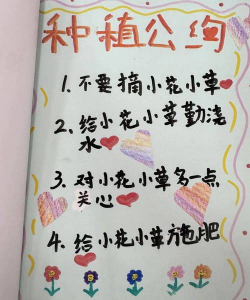 种植公约
1、不要摘小花小草
2、给小花小草勤浇
水
3、对小花小草多一点
关心
4、给小花小草施肥